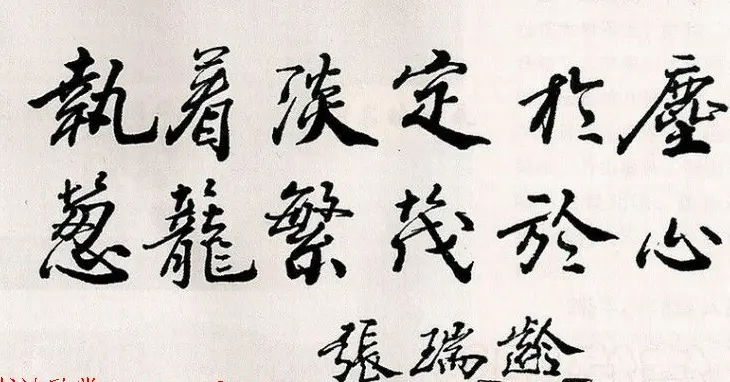 執着淡定於塵
葱蘢繁茂於心
張瑞齡